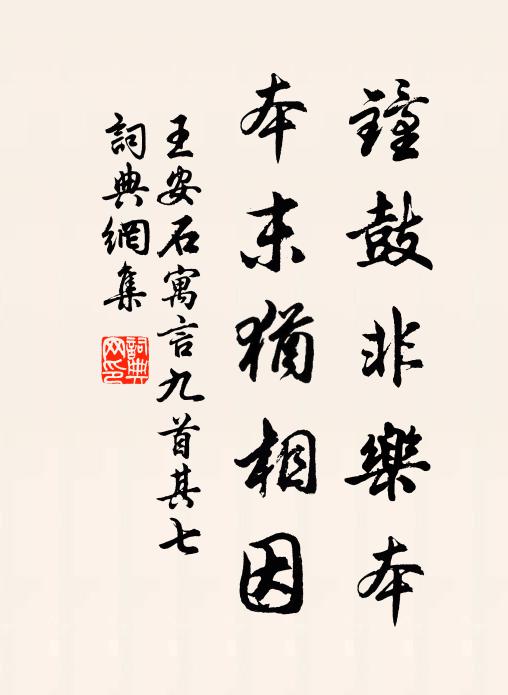 鐘鼓非樂本
本末猶相因
王安石寓言九首其七
詞典網集
詞典網印